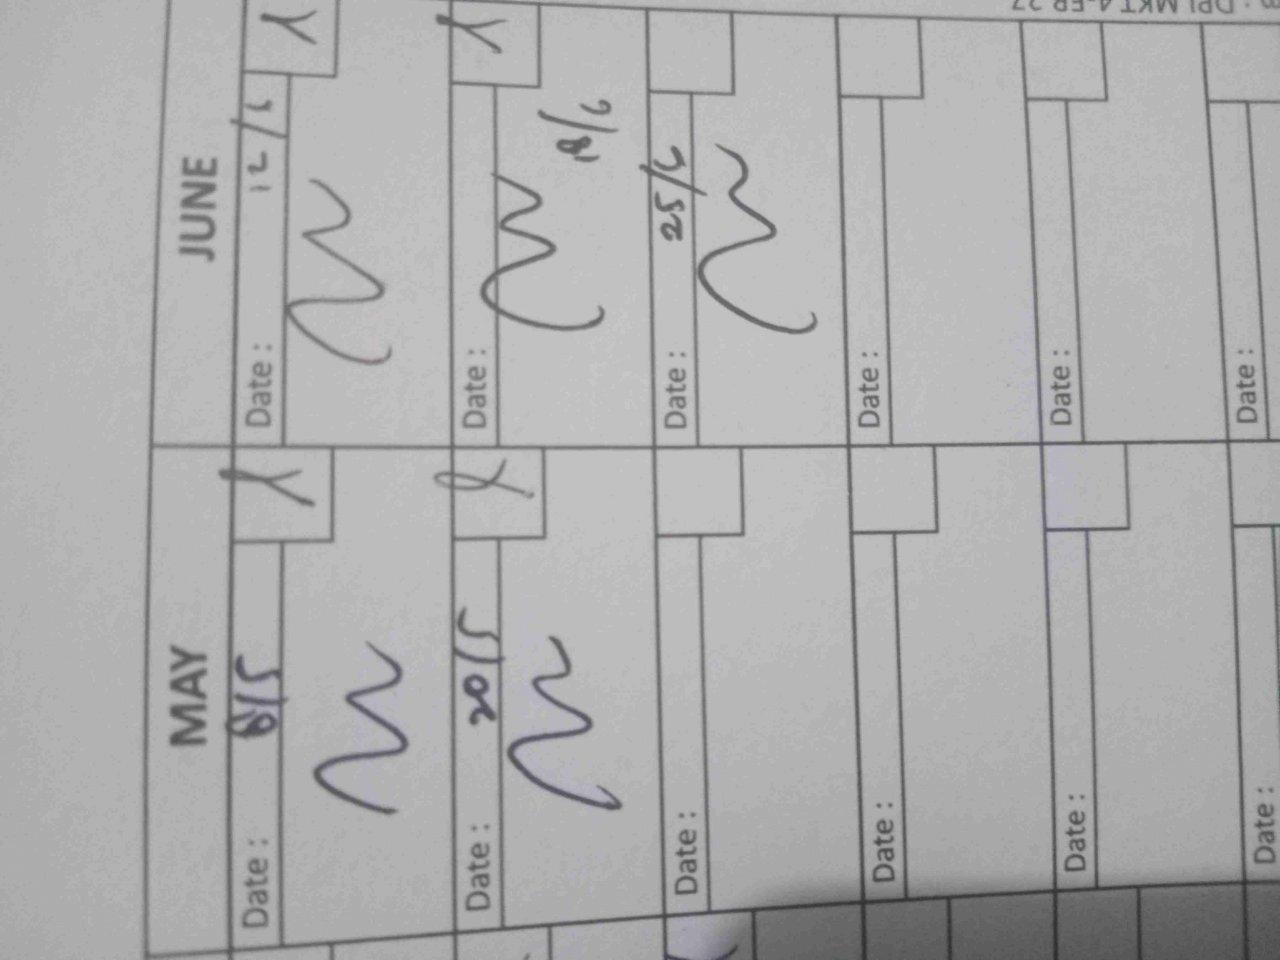 MAY JUNE
Date : 8/5 Date : 12/6
Date : 20/5 Date :
18/6
Date : Date : 25/6
Date : Date :
Date : Date :
Date : Date :